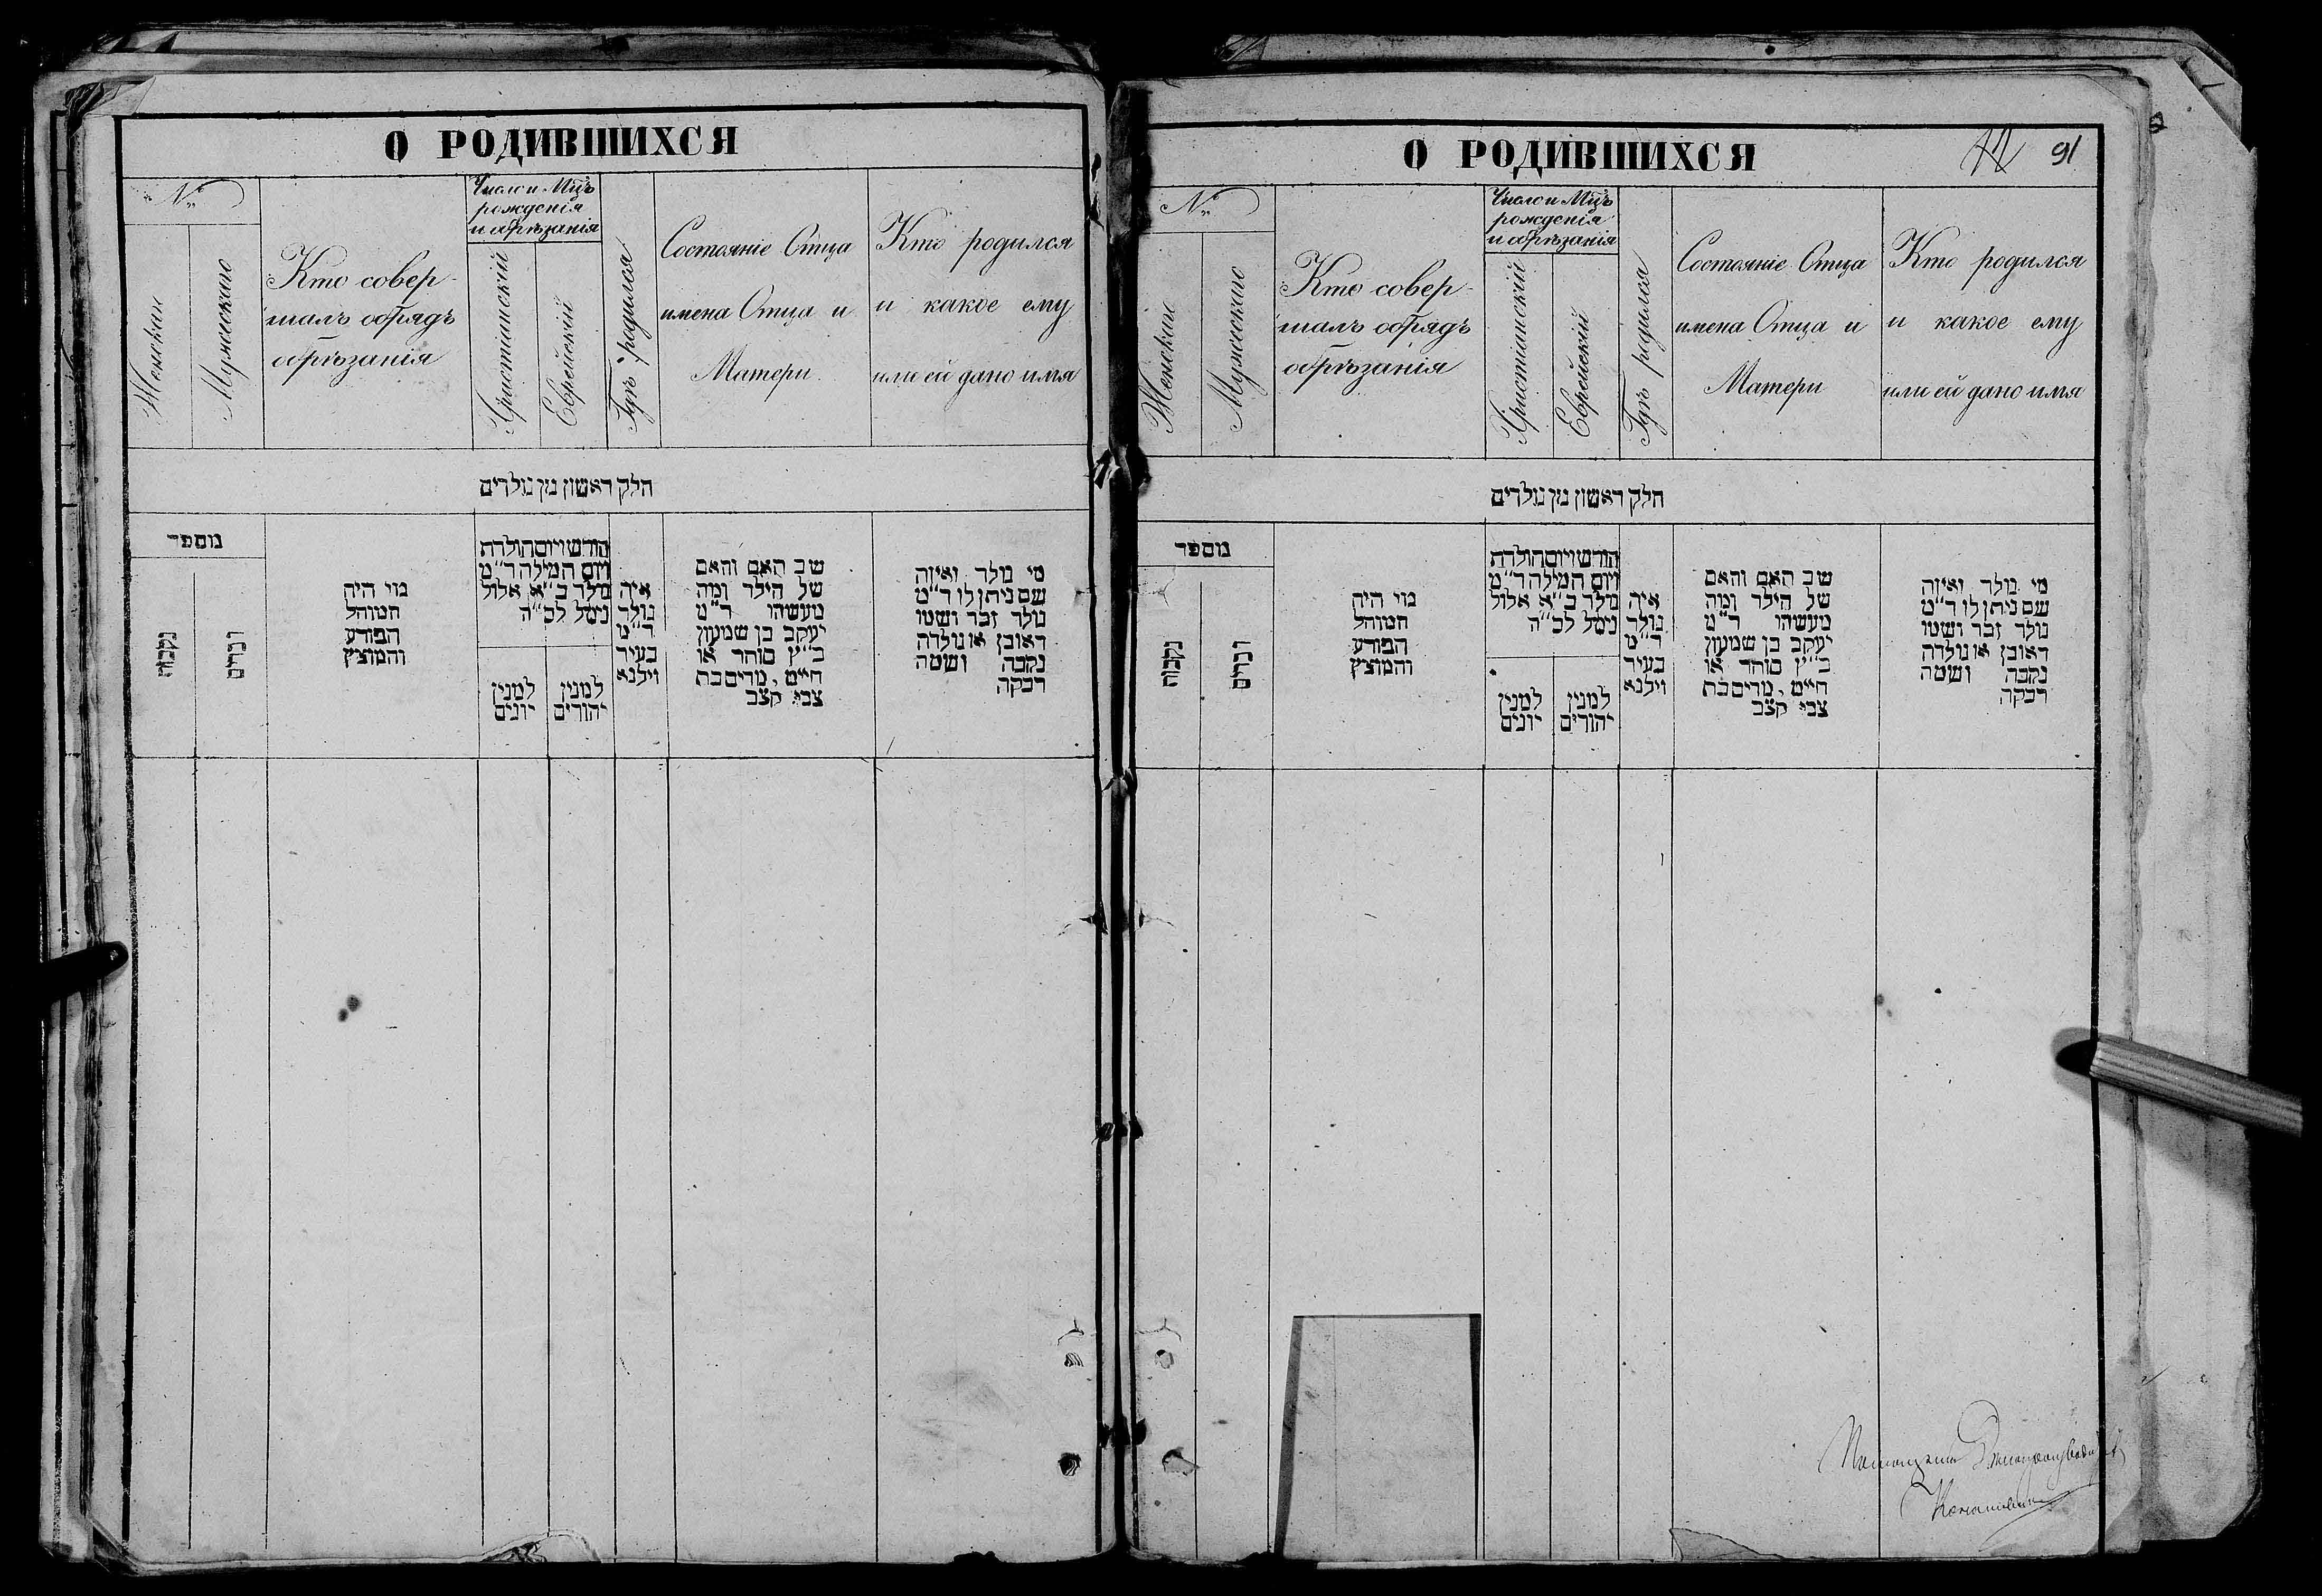 О РОДИВШИХСЯ
№
Женскаго
Мужескаго
Кто совер-
шалъ обрядъ
обрѣзанія
Число и Мцъ
рожденія
и обрѣзанія
Христіанскій
Еврейскій
Гдѣ родился
Состояніе Отца
имена Отца и
Матери
Кто родился
и какое ему
или ей дано имя
חלק ראשון מן נולדים
מספר
נקבות
זכרים
מי היה
המוהל
הפורע
והמוצץ
חודש ויום הולדת
ויום המילה ד״מ
נולד כ״א אלול
נימל לכ״ה
למנין
יונים
למנין
יהודים
איה
נולד
ד״מ
בעיר
וילנא
שב האם והאם
של הילד ומה
מעשהו ד״מ
יעקב בן שמעון
כ״ץ סוחר או
חייט, מרים בת
צבי קצב
מי נולד ואיזה
שם ניתן לו ד״מ
נולד זכר ושמו
ראובן או נולדה
נקבה ושמה
רבקה
О РОДИВШИХСЯ
91
№
Женскаго
Мужескаго
Кто совер-
шалъ обрядъ
обрѣзанія
Число и Мцъ
рожденія
и обрѣзанія
Христіанскій
Еврейскій
Гдѣ родился
Состояніе Отца
имена Отца и
Матери
Кто родился
и какое ему
или ей дано имя
חלק ראשון מן נולדים
מספר
נקבות
זכרים
מי היה
המוהל
הפורע
והמוצץ
חודש ויום הולדת
ויום המילה ד״מ
נולד כ״א אלול
נימל לכ״ה
למנין
יונים
למנין
יהודים
איה
נולד
ד״מ
בעיר
וילנא
שב האם והאם
של הילד ומה
מעשהו ד״מ
יעקב בן שמעון
כ״ץ סוחר או
חייט, מרים בת
צבי קצב
מי נולד ואיזה
שם ניתן לו ד״מ
נולד זכר ושמו
ראובן או נולדה
נקבה ושמה
רבקה